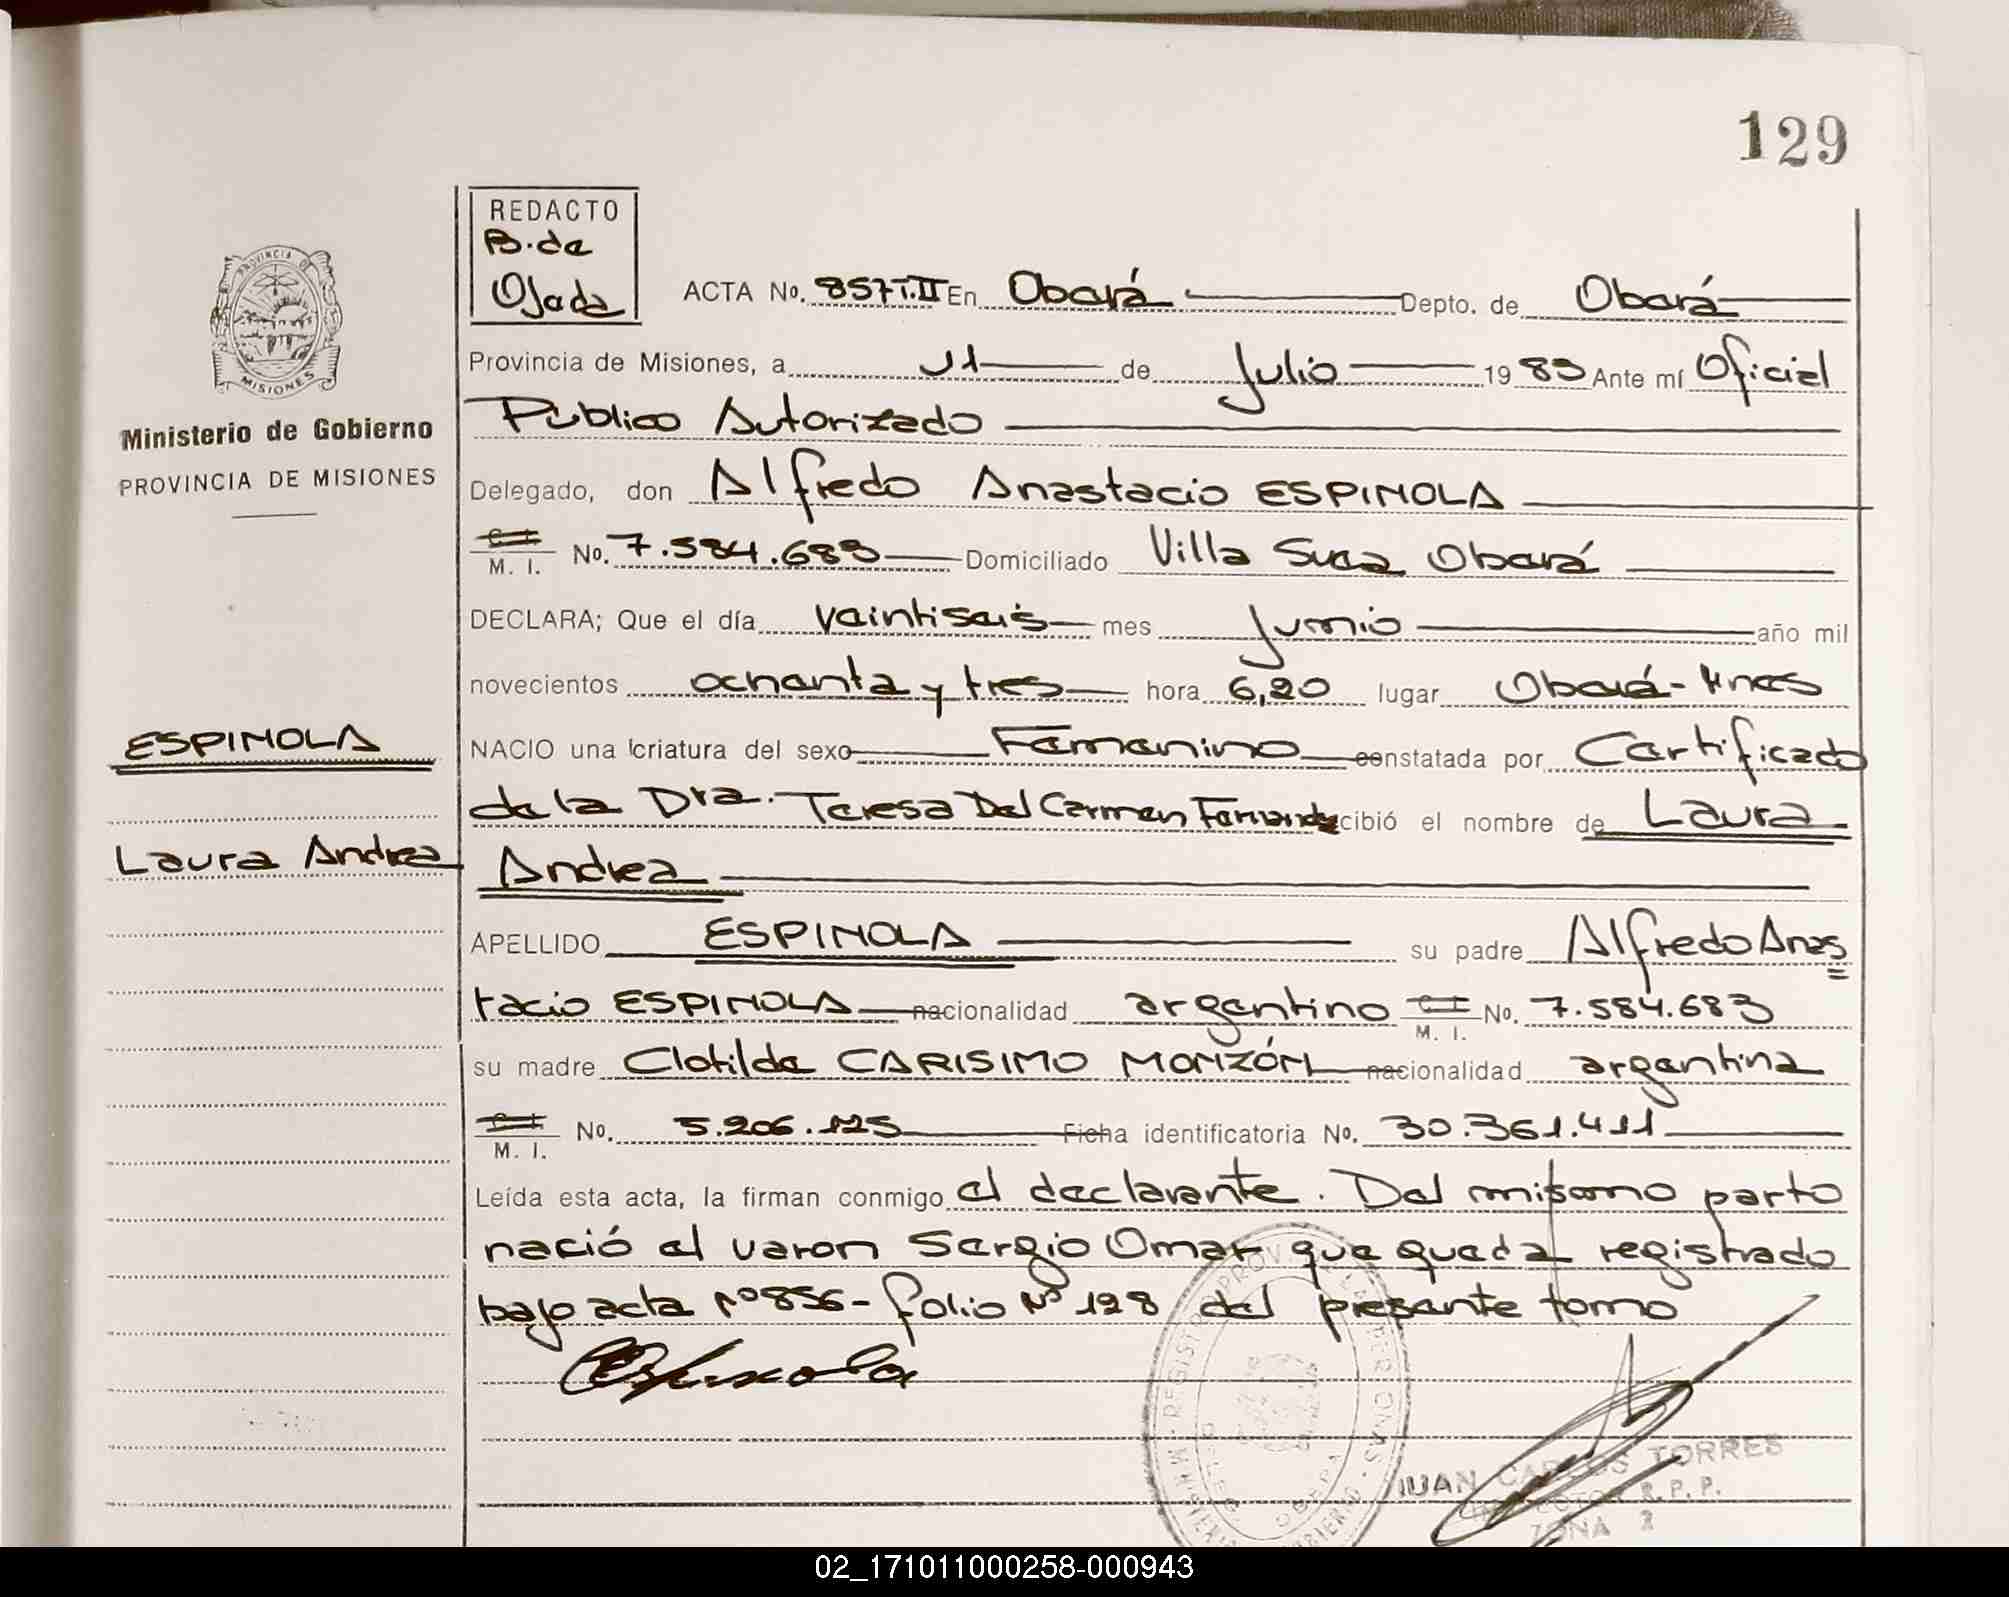 129
REDACTO
B. de
Ojeda
PROVINCIA DE
MISIONES
Ministerio de Gobierno
PROVINCIA DE MISIONES
ACTA No. 857 T.II En Oberá Depto. de Oberá
Provincia de Misiones, a 11 de Julio 1983 Ante mí Oficial
Público Autorizado
Delegado, don Alfredo Anastacio ESPINOLA
C. I. M. I. No. 7.584.683 Domiciliado Villa Oberá
DECLARA; Que el día veintiseis mes Junio año mil
novecientos ochenta y tres hora 6,20 lugar Oberá - Mnes
ESPINOLA
NACIO una criatura del sexo Femenino constatada por Certificado
de la Dra. Teresa Del Carmen cibió el nombre de Laura
Laura Andrea
Andrea
APELLIDO ESPINOLA su padre Alfredo Anas
tacio ESPINOLA nacionalidad argentino C. I. M. I. No. 7.584.683
su madre Clotilde CARISIMO MONZÓN nacionalidad argentina
C. I. M. I. No. 5.206.125 Ficha identificatoria No. 30.361.411
Leída esta acta, la firman conmigo el declarante. Del misomo parto
nació el varon Sergio Omar que queda registrado
bajo acta Nº 856 - folio Nº 128 del presente tomo
JUAN CARLOS TORRES
ZONA 2
02_171011000258-000943